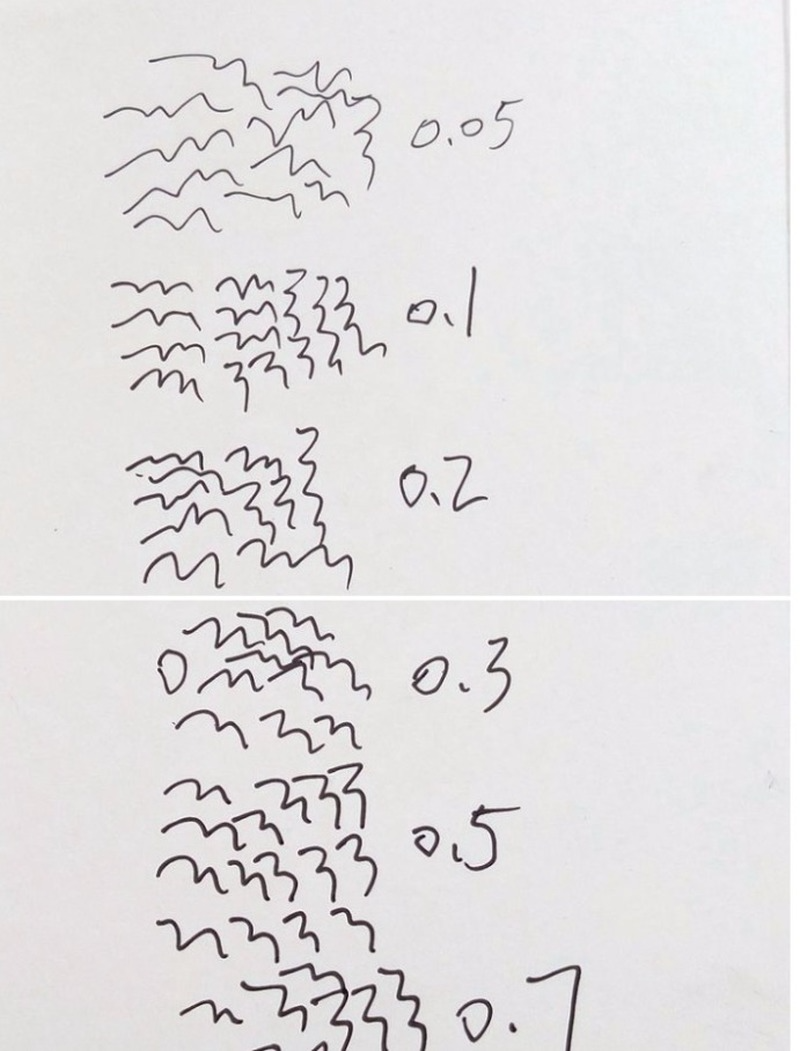 0.05
0.1
0.2
0.3
0.5
0.7